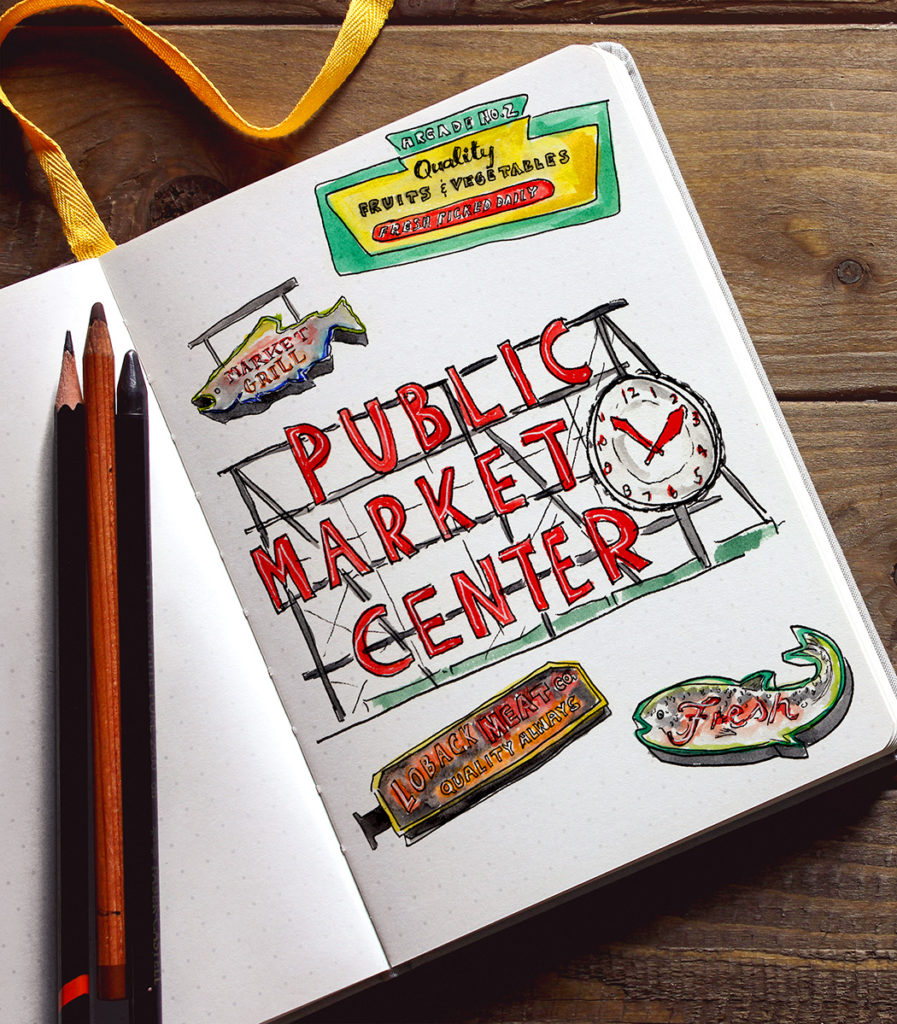 ARCADE NO. 2
Quality
FRUITS & VEGETABLES
FRESH PICKED DAILY
MARKET
GRILL
PUBLIC
MARKET
CENTER
12
1
2
3
4
5
6
7
8
9
LOBACK MEAT CO.
QUALITY ALWAYS
Fresh